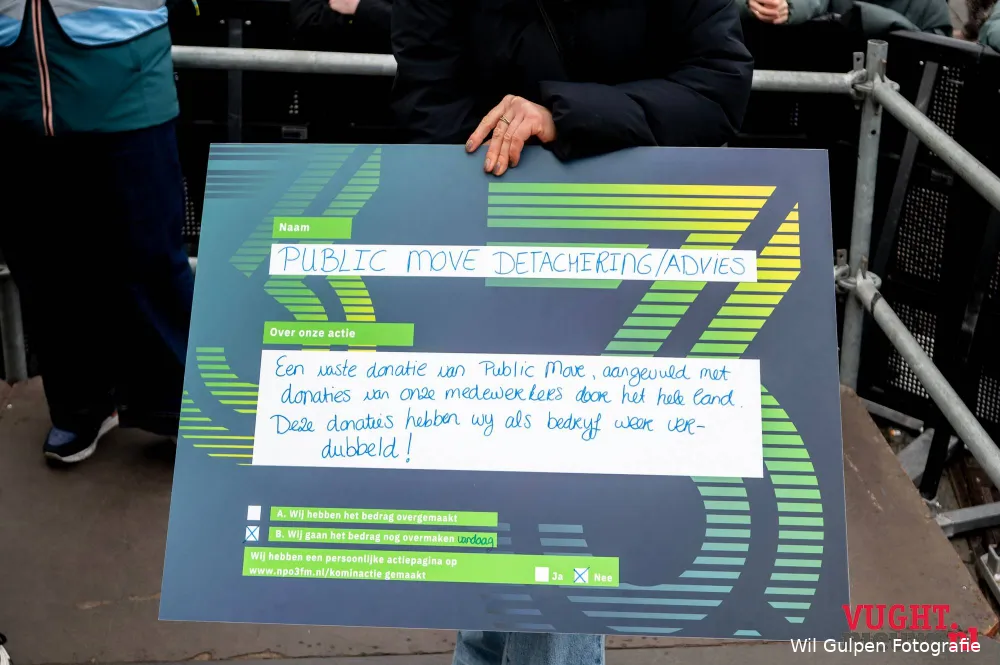 Naam
PUBLIC MOVE DETACHERING/ADVIES
Over onze actie
Een vaste donatie van Public Move, aangevuld met
donaties van onze medewerkers door het hele land.
Deze donaties hebben wij als bedrijf weer ver-
dubbeld!
A. Wij hebben het bedrag overgemaakt
B. Wij gaan het bedrag nog overmaken vandaag
Wij hebben een persoonlijke actiepagina op
www.npo3fm.nl/kominactie gemaakt
Ja Nee
VUGHT.
Wil Gulpen Fotografie